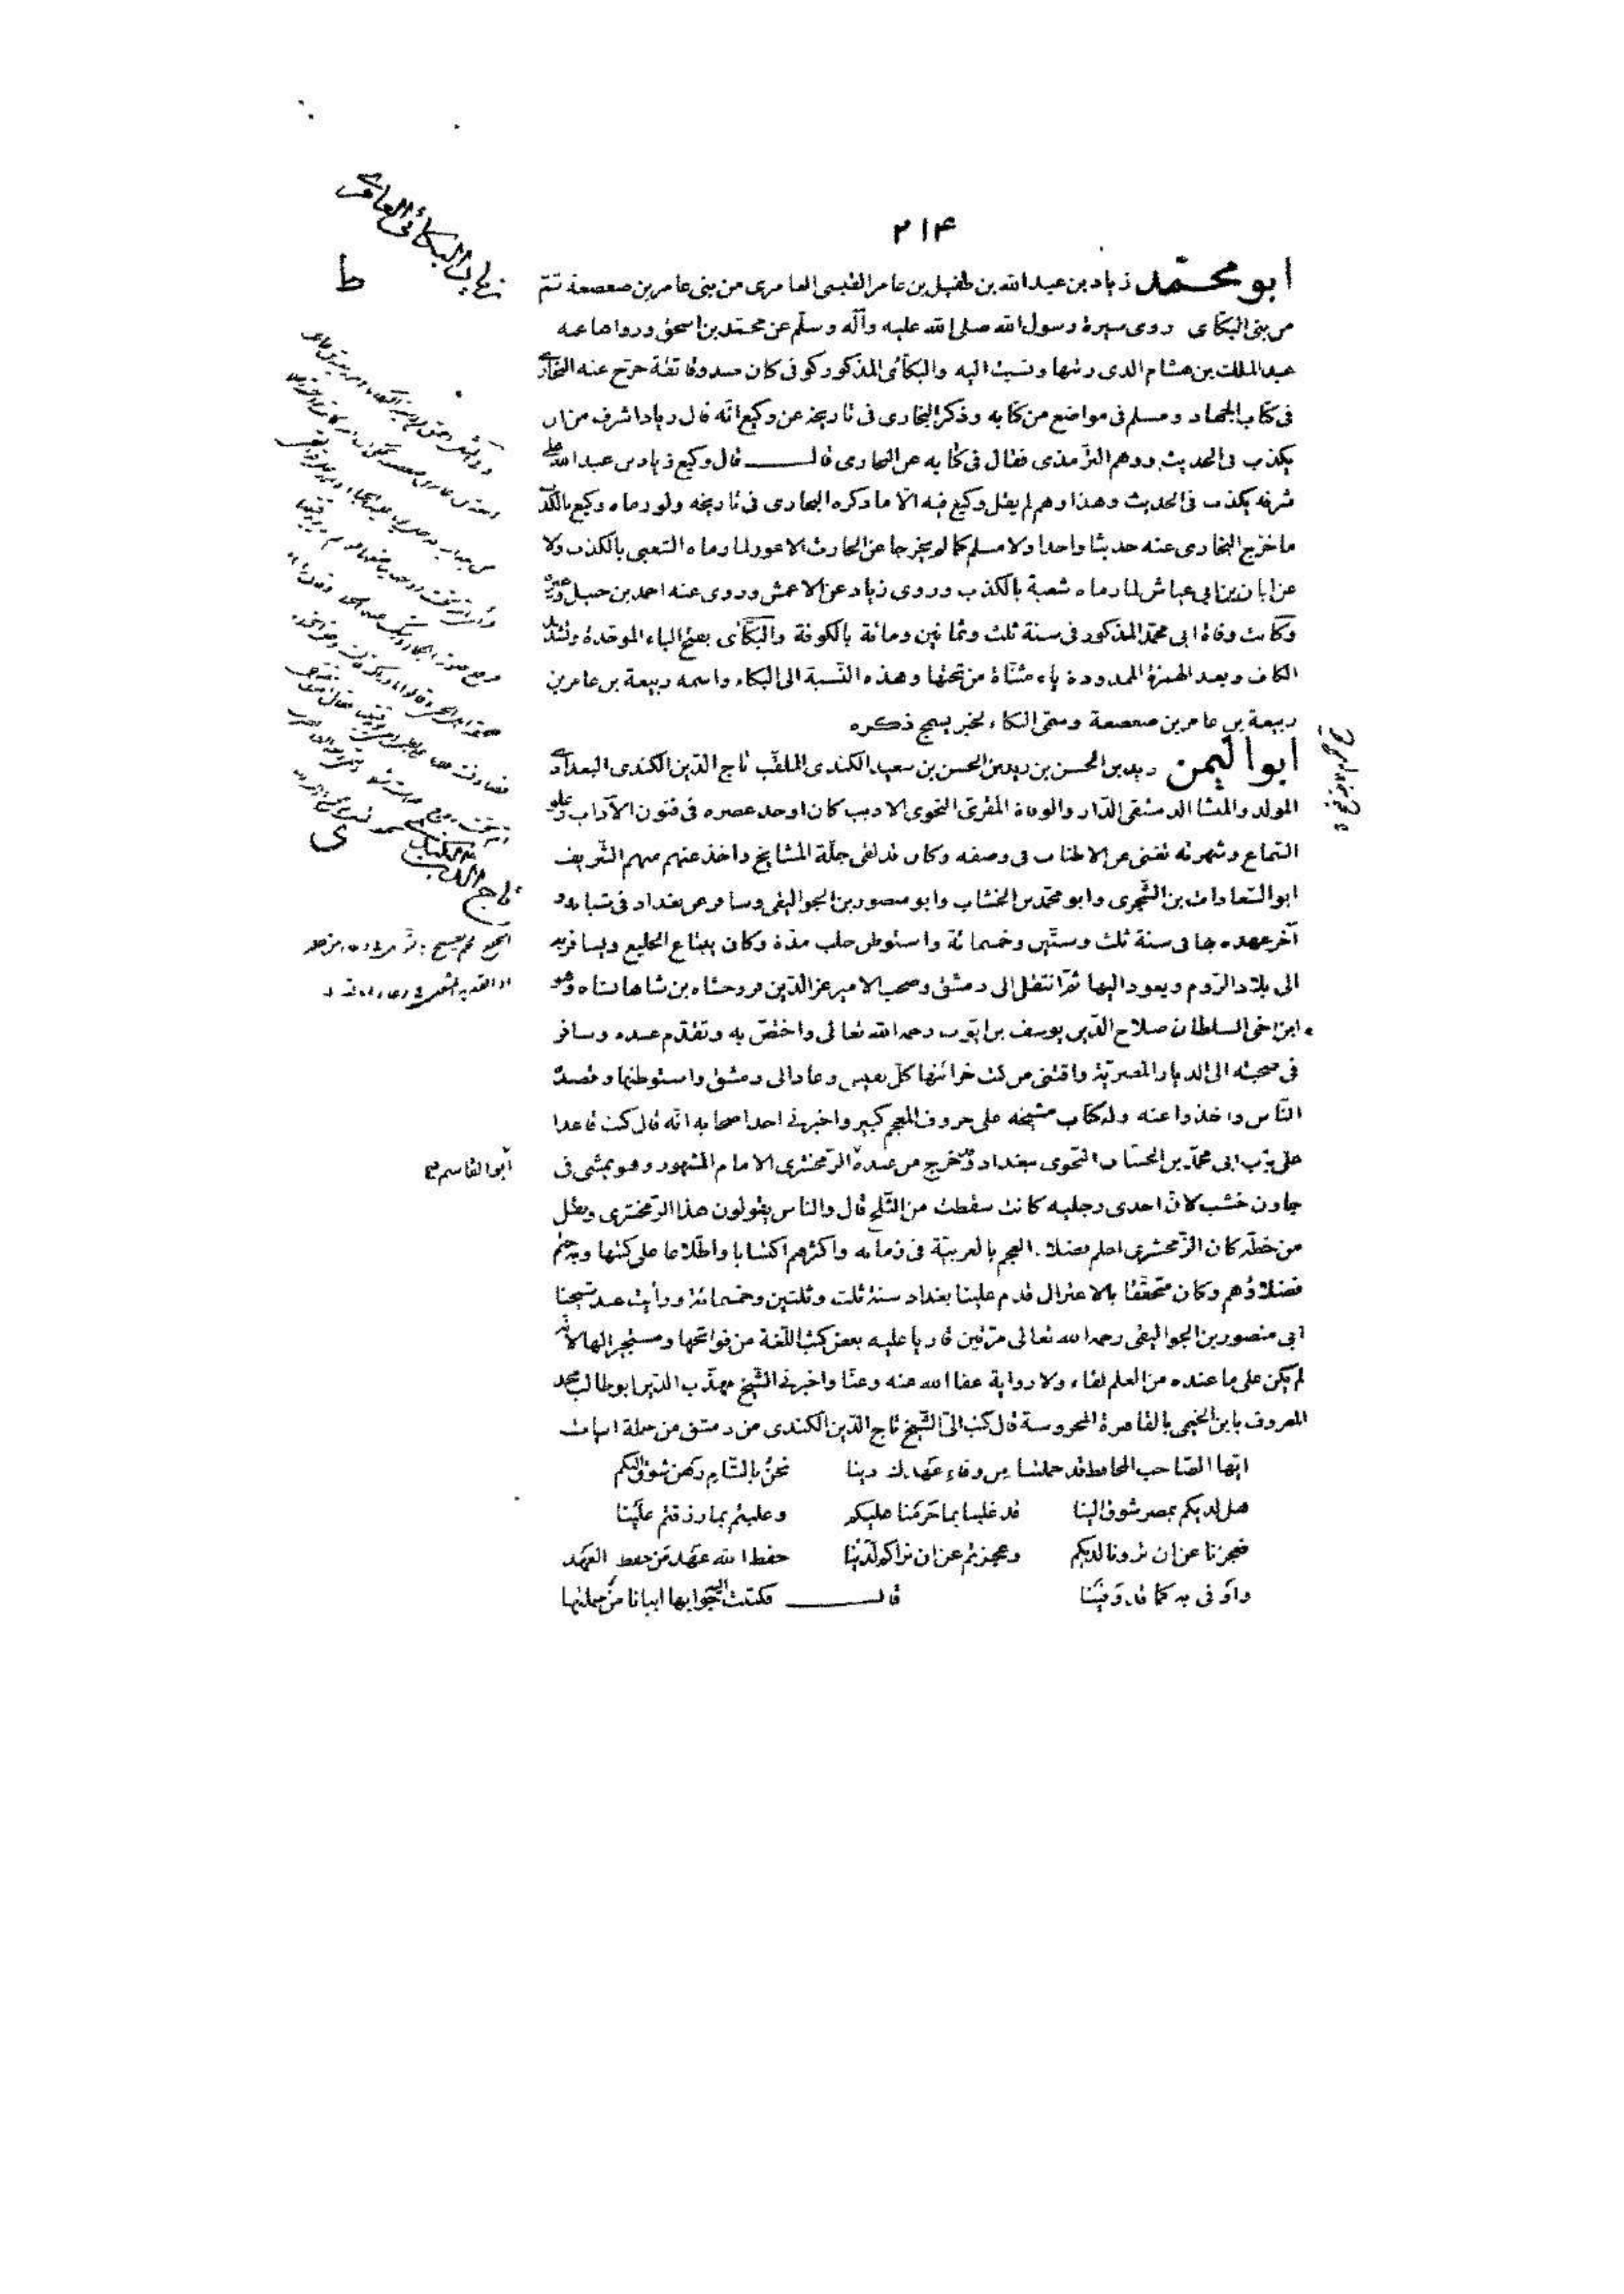 ۲۱۴
زياد البكائى العامرى
ط
ابو محمّد زياد بن عبد الله بن طفيل بن عامر القيسى العامرى من بنى عامر بن صعصعة ثمّ
من بنى البكّاى روى سيرة رسول الله صلى الله عليه وآله وسلّم عن محمّد بن اسحق ورواها عنه
عبد الملك بن هشام الذى رتبها ونسبت اليه والبكّائى المذكور كوفى كان صدوقا ثقة خرّج عنه البخارى
فى كتاب الجهاد ومسلم فى مواضع من كتابه وذكر البخارى فى تاريخه عن وكيع انّه قال زياد اشرف من ان
يكذب فى الحديث ووهم الترمذى فقال فى كتابه عن البخارى قال قال وكيع زياد بن عبد الله على
شرفه يكذب فى الحديث وهذا وهم لم يقل وكيع فيه الّا ما ذكره البخارى فى تاريخه ولو رماه وكيع بالكذب
ما خرّج البخارى عنه حديثا واحدا ولا مسلم كما لم يخرجا عن الحارث الاعور لما رماه الشعبى بالكذب ولا
عن ابان بن ابى عياش لما رماه شعبة بالكذب وروى زياد عن الاعمش وروى عنه احمد بن حنبل وغيره
وكانت وفاة ابى محمّد المذكور فى سنة ثلث وثمانين ومائة بالكوفة والبكّائى بفتح الباء الموحّدة وتشديد
الكاف وبعد الهمزة الممدودة ياء مثنّاة من تحتها وهذه النّسبة الى البكاء واسمه ربيعة بن عامر بن
ربيعة بن عامر بن صعصعة وسمّى البكاء لخبر يسمج ذكره
ابو اليمن زيد بن الحسن بن زيد بن الحسن بن سعيد الكندى الملقّب تاج الدّين الكندى البغدادى
المولد والمنشا الدمشقى الدّار والوفاة المقرئ النحوى الاديب كان اوحد عصره فى فنون الآداب وعلو
السّماع وشهرته تغنى عن الاطناب فى وصفه وكان قد لقى جلّة المشايخ واخذ عنهم منهم الشّريف
ابو السّعادات بن الشّجرى وابو محمّد بن الخشاب وابو منصور بن الجواليقى وسافر عن بغداد فى شبابه و
آخر عهده بها فى سنة ثلث وستّين وخمسمائة واستوطن حلب مدّة وكان يبتاع الخليع ويسافر به
الى بلاد الرّوم ويعود اليها ثمّ انتقل الى دمشق وصحب الامير عزّ الدّين فروخشاه بن شاهانشاه وهو
ابن اخى السلطان صلاح الدّين يوسف بن ايّوب رحمه الله تعالى واختصّ به وتقدّم عنده وسافر
فى صحبته الى الديار المصريّة واقتنى من كتب خزائنها كلّ نفيس وعاد الى دمشق واستوطنها وقصده
النّاس واخذوا عنه وله كتاب مشيخه على حروف المعجم كبير واخبرنى احد اصحابه انّه قال كنت قاعدا
على باب ابى محمّد بن الخشاب النّحوى ببغداد وقد خرج من عنده الزّمخشرى الامام المشهور وهو يمشى فى
ابو القاسم
جاون خشب لانّ احدى رجليه كانت سقطت من الثّلج قال والناس يقولون هذا الزّمخشرى ونقل
من خطّه كان الزّمخشرى اعلم فضلاء العجم بالعربيّة فى زمانه واكثرهم اكتسابا واطّلاعا على كتبها وبه ختم
فضلاؤهم وكان متحقّقا بالاعتزال قدم علينا بغداد سنة ثلث وثلثين وخمسمائة ورأيته عند شيخنا
ابى منصور بن الجواليقى رحمه الله تعالى مرّتين قاريا عليه بعض كتب اللّغة من فواتحها ومستجيزا لها لانّه
لم يكن على ما عنده من العلم لقاء ولا رواية عفا الله عنه وعنّا واخبرنى الشّيخ مهذّب الدّين ابو طالب محمد
المعروف بابن الخيمى بالقاهرة المحروسة قال كتب الىّ الشّيخ تاج الدّين الكندى من دمشق من جملة ابيات
ايّها الصّاحب المحافظ قد حمّلتنا من وفاء عهدك دينا نحن بالشّام رهن شوق اليكم
هل لديكم بمصر شوق الينا قد غلبنا بما حرمنا عليكم وغلبتم بما رزقتم علينا
فعجزنا عن ان ترونا لديكم وعجزتم عن ان نراكم لدينا حفظ الله عهد من حفظ العهد
واوفى به كما قد وفينا قال فكتبت اليه جوابها ابياتا من جملتها